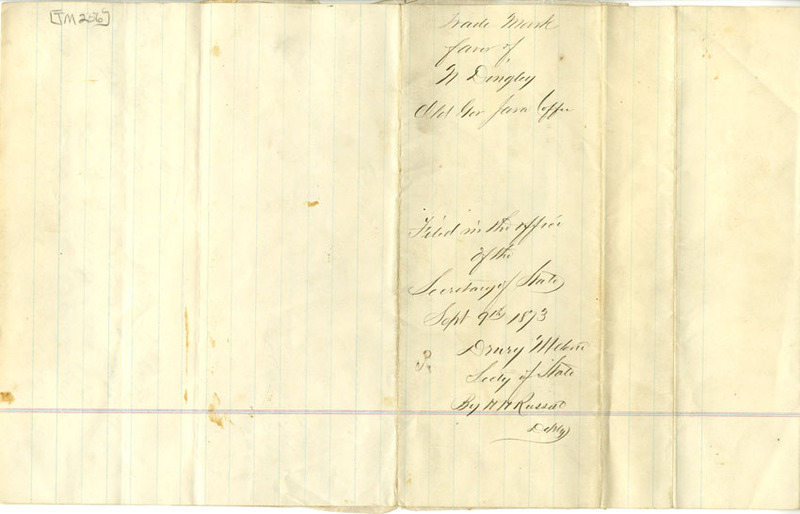 [TM 206]
Trade Mark
favor of
N Dingley
Old Gov Java Coffee
Filed in the office
of the
Secretary of State
Sept 9th 1873
Drury Melone
Secty of State
By
Depty